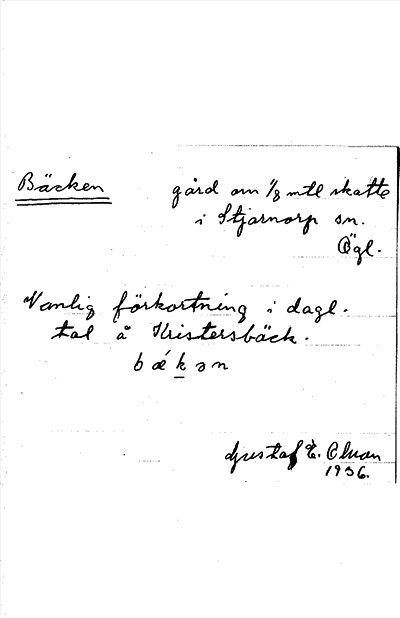 Bäcken
gård om 1/8 mtl skatte
i Stjärnorp sn.
Ögl.
Vanlig förkortning i dagl.
tal å Kristersbäck.
bǽkən
Gustaf E. Olson
1936.